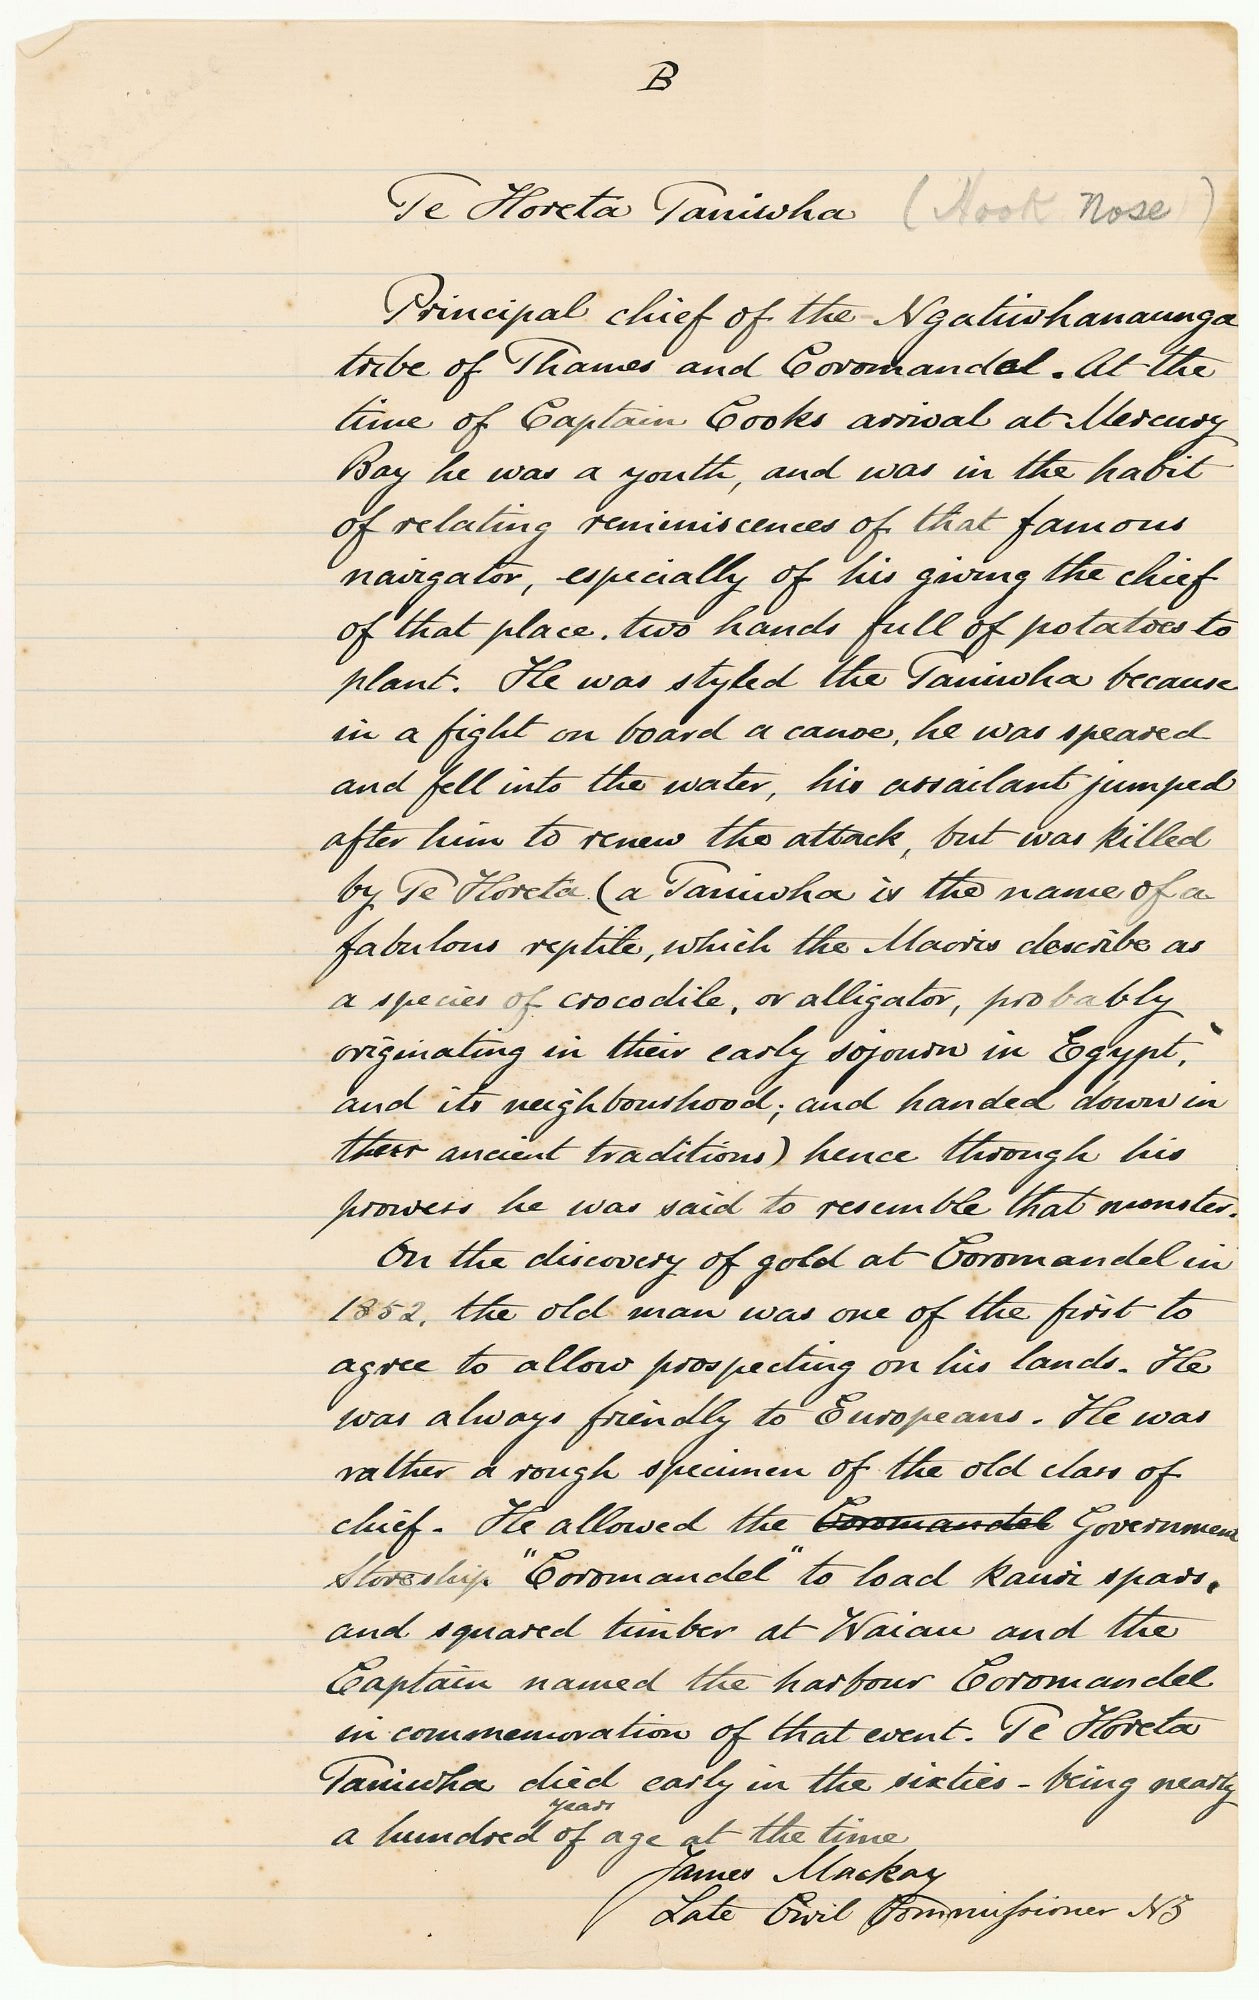 B
Te Horeta Taniwha (Hook Nose)
Principal chief of the Ngatiwhanaunga
tribe of Thames and Coromandel. At the
time of Captain Cooks arrival at Mercury
Bay he was a youth, and was in the habit
of relating reminiscences of that famous
navigator, especially of his giving the chief
of that place. two hands full of potatoes to
plant. He was styled the Taniwha because
in a fight on board a canoe, he was speared
and fell into the water, his assailant jumped
after him to renew the attack, but was killed
by Te Horeta (a Taniwha is the name of a
fabulous reptile, which the Maoris describe as
a species of crocodile, or alligator, probably
originating in their early sojourn in Egypt,
and its neighbourhood; and handed down in
their ancient traditions) hence through his
prowess he was said to resemble that monster.
On the discovery of gold at Coromandel in
1852. the old man was one of the first to
agree to allow prospecting on his lands. He
was always friendly to Europeans. He was
rather a rough specimen of the old class of
chief. He allowed the Coromandel Government
Storeship "Coromandel" to load kauri spars.
and squared timber at Waiau and the
Captain named the harbour Coromandel
in commemoration of that event. Te Horeta
Taniwha died early in the sixties - being nearly
years
a hundred of age at the time
James Mackay
Late Civil Commissioner NZ